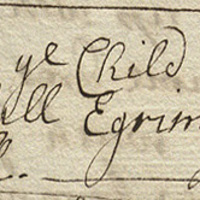 ye Child
ll Egrim